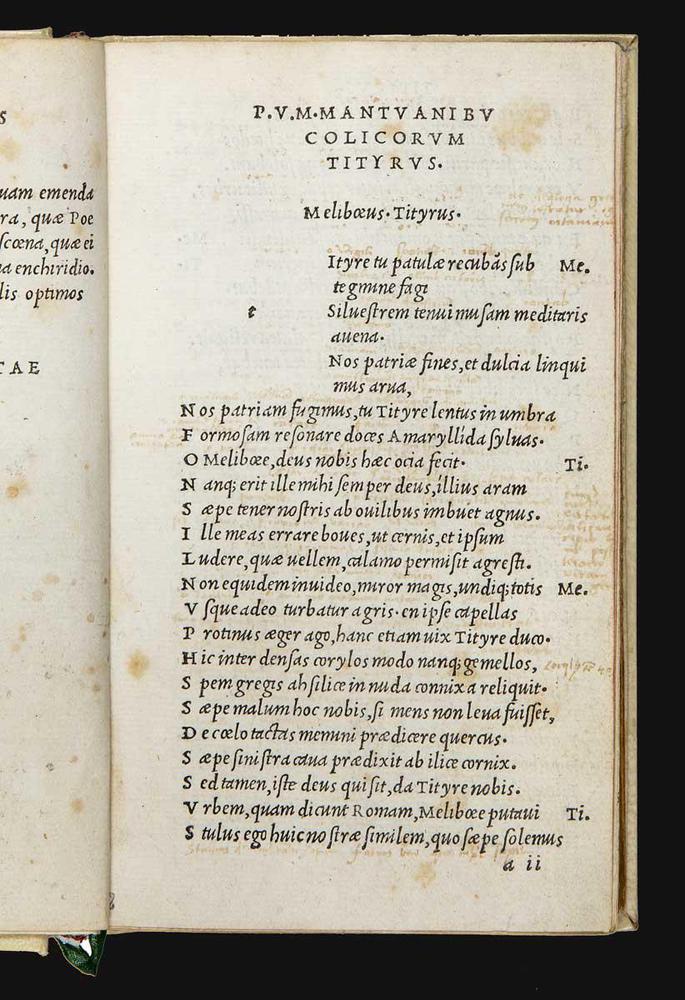 S
uam emenda
ra, quæ Poe
scœna, quæ ei
na enchiridio.
lis optimos
TAE
P.V.M.MANTVANI BV
COLICORVM
TITYRVS.
Melibœus. Tityrus.
Ityre tu patulæ recubãs sub Me.
tegmine fagi
t Siluestrem tenui musam meditaris
auena.
Nos patriæ fines, et dulcia linqui
mus arua,
Nos patriam fugimus, tu Tityre lentus in umbra
Formosam resonare doces Amaryllida syluas.
O Melibœe, deus nobis hæc ocia fecit. Ti.
Nanq; erit ille mihi semper deus, illius aram
Sæpe tener nostris ab ouilibus imbuet agnus.
Ille meas errare boues, ut cernis, et ipsum
Ludere, quæ uellem, calamo permisit agresti.
Non equidem inuideo, miror magis, undiq; totis Me.
Vsque adeo turbatur agris. en ipse capellas
Protinus æger ago, hanc etiam uix Tityre duco.
Hic inter densas corylos modo nanq; gemellos,
Spem gregis ah silice in nuda connixa reliquit.
Sæpe malum hoc nobis, si mens non leua fuisset,
De cœlo tactas memini prædicere quercus.
Sæpe sinistra caua prædixit ab ilice cornix.
Sed tamen, iste deus qui sit, da Tityre nobis.
Vrbem, quam dicunt Romam, Melibœe putaui Ti.
Stulus ego huic nostræ similem, quo sæpe solemus
a ii